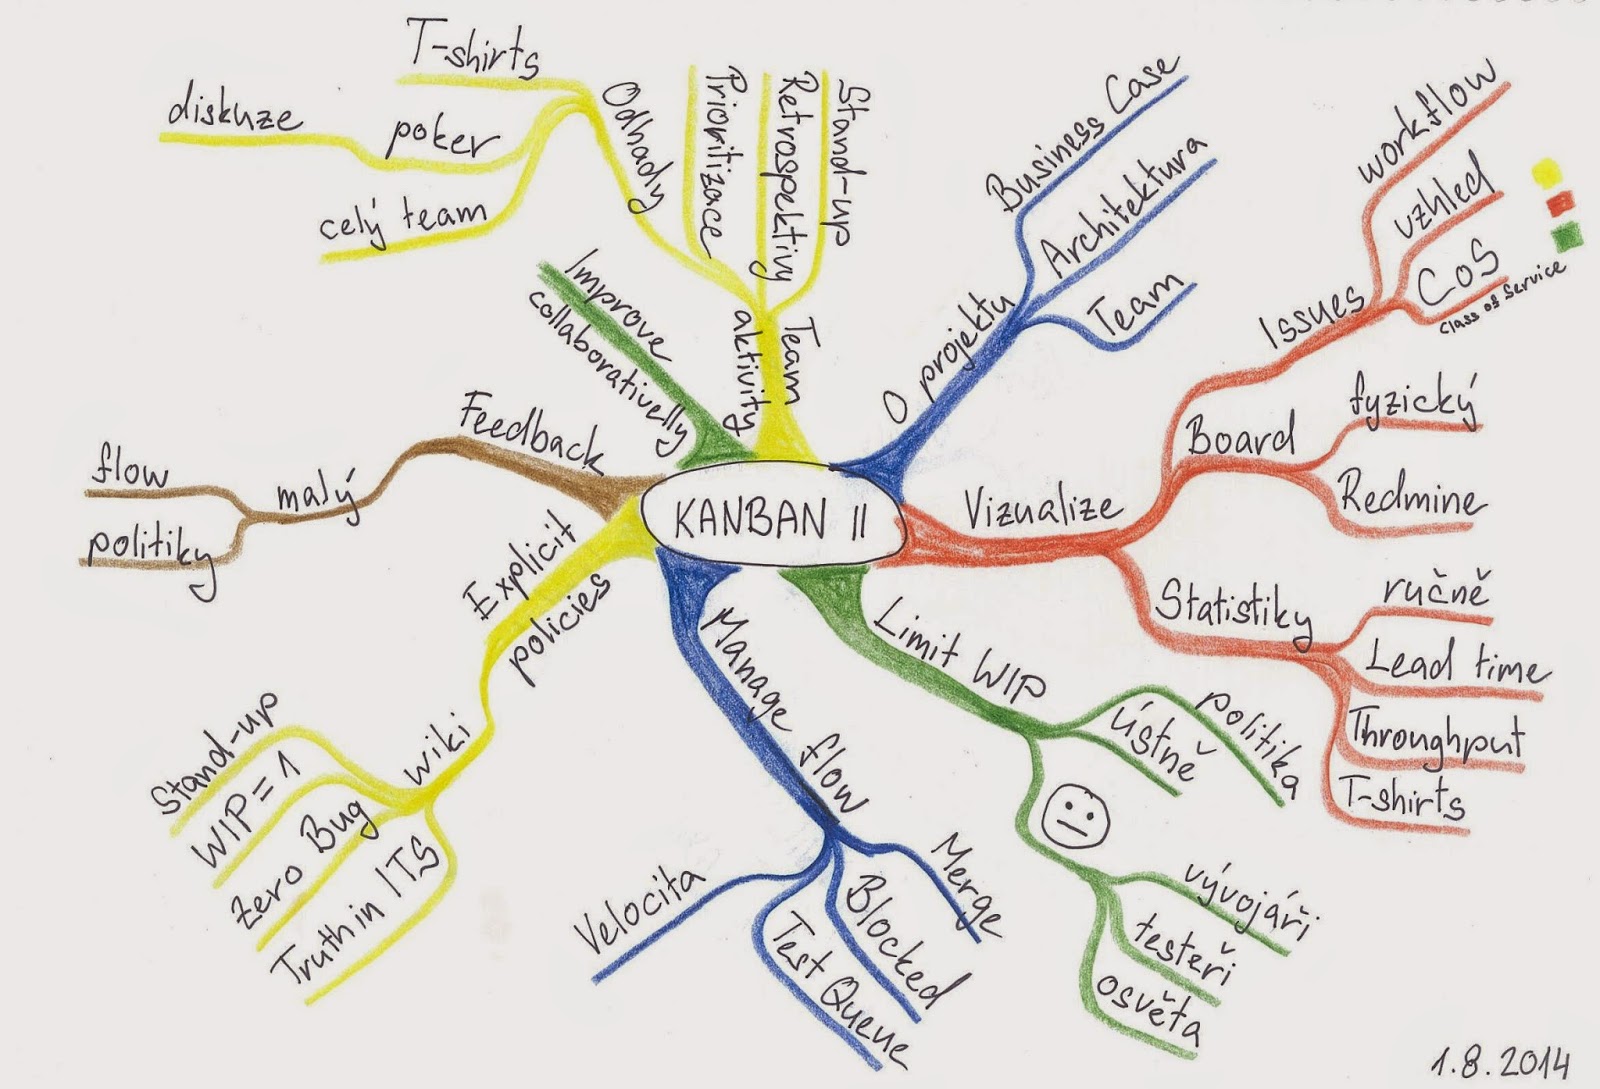 KANBAN II
O projektu
Business Case
Architektura
Team
Vizualize
Issues
workflow
vzhled
CoS
Class of Service
Board
fyzický
Redmine
Statistiky
ručně
Lead time
Throughput
T-shirts
Limit WIP
politika
ústně
vývojáři
testeři
osvěta
Manage flow
Merge
Blocked
Test Queue
Velocita
Explicit
policies
wiki
Stand-up
WIP = 1
Zero Bug
Truth in ITS
Feedback
malý
flow
politiky
Improve
collaborativelly
Team
aktivity
Odhady
T-shirts
poker
diskuze
celý team
Prioritizace
Retrospektivy
Stand-up
1.8.2014